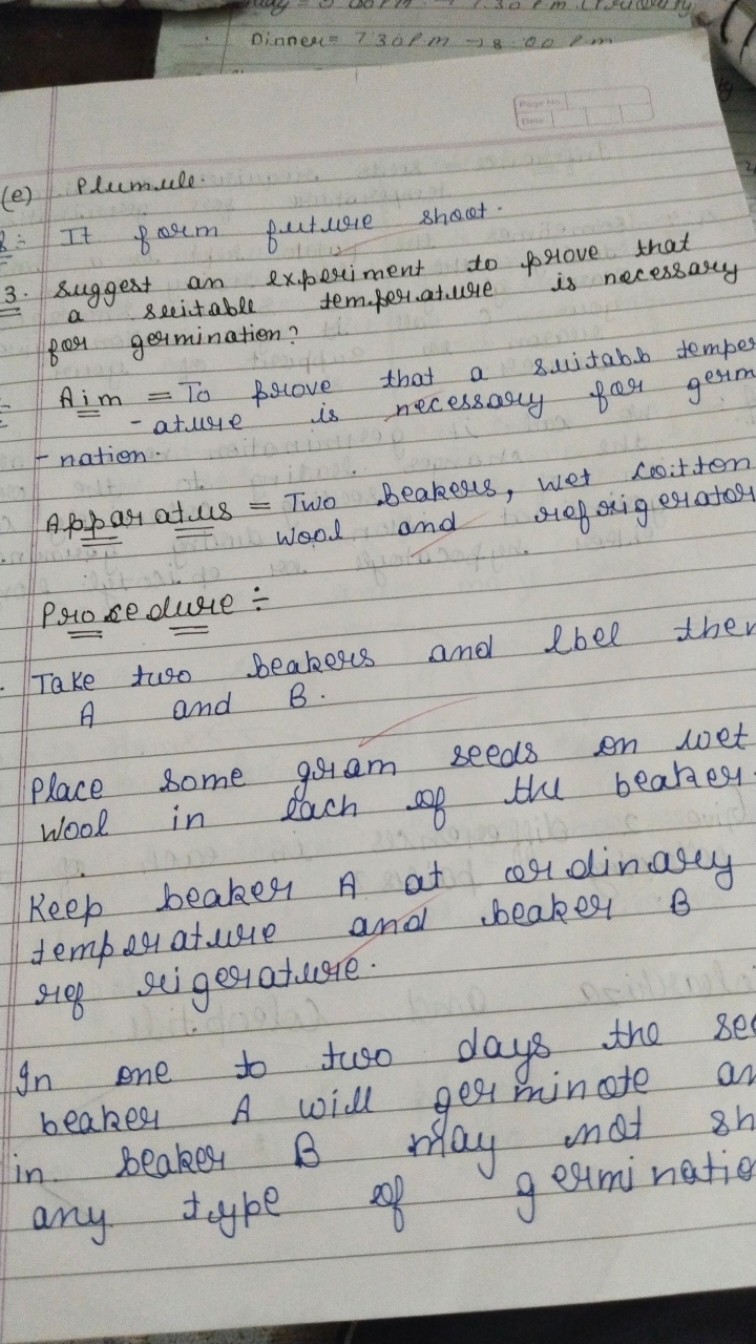 Dinner = 7:30 P m → 8:00 P m
Page No.
Date
(e) Plumule.
It form future shoot.
3. Suggest an experiment to prove that
a suitable temperature is necessary
for germination?
Aim = To prove that a suitabb temper
-ature is necessary for germ
-nation.
Apparatus = Two beakers, wet cotton
wool and refrigerator
Procedure ÷
Take two beakers and lbel them
A and B.
Place some gram seeds on wet
wool in each of the beaker.
Keep beaker A at ordinary
temperature and beaker B
ref rigerature.
In one to two days the see
beaker A will germinate an
in beaker B may not sh
any type of germinatio